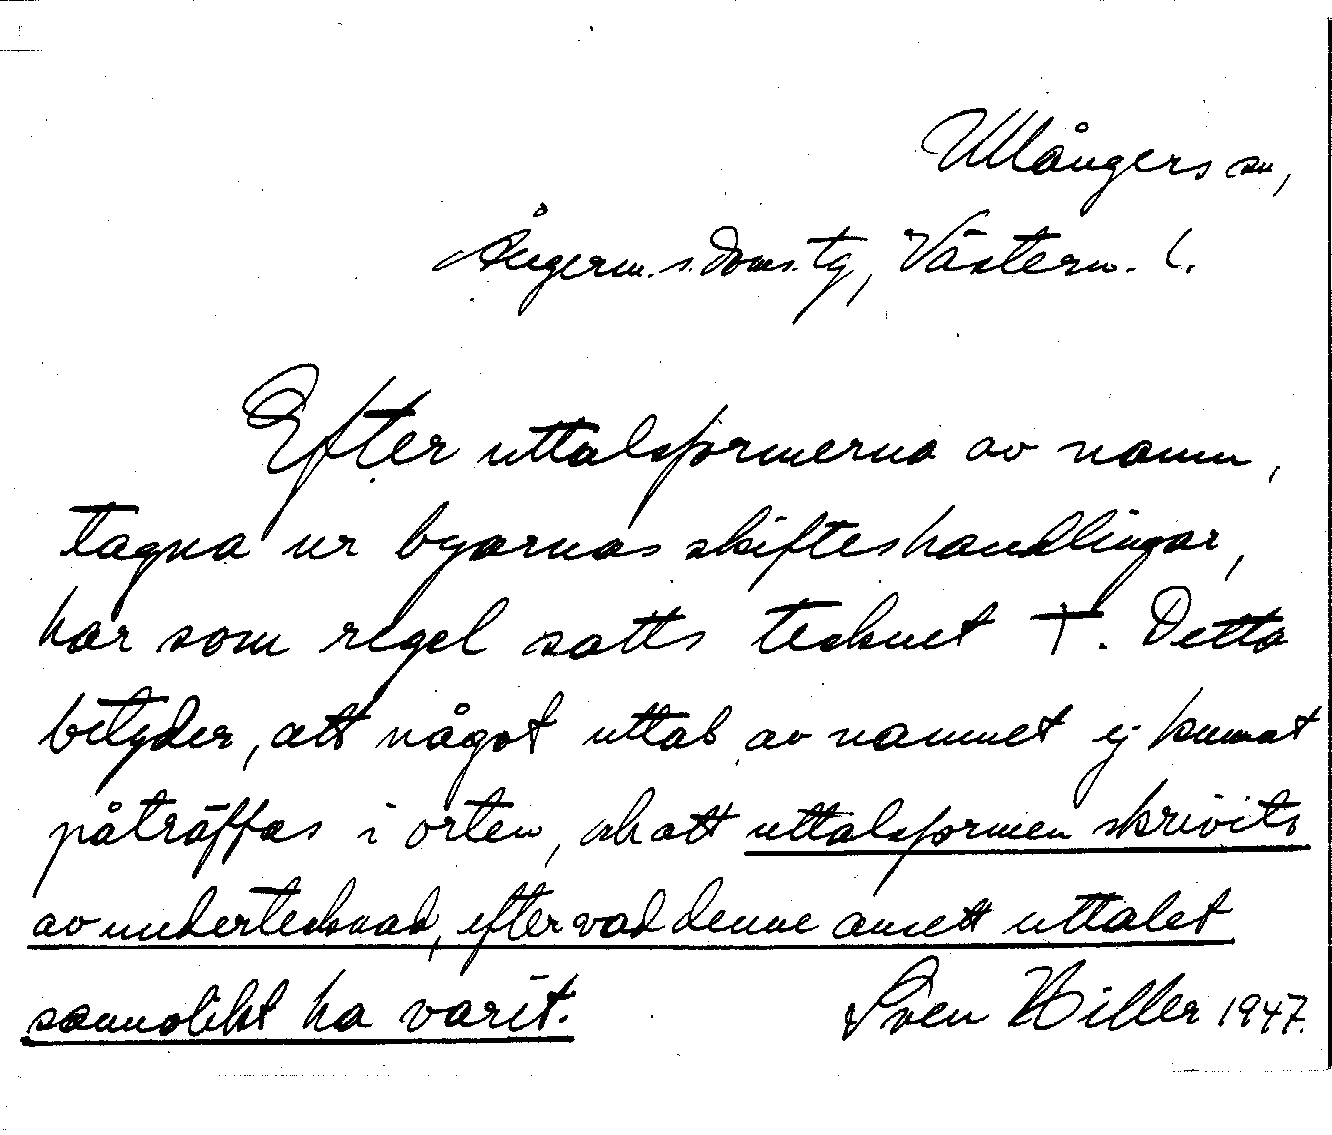 Ullångers sn,
Ångerm. s. doms. tg, Västern. l.
Efter uttalsformerna av namn,
tagna ur byarnas skifteshandlingar,
har som regel satts tecknet †. Detta
betyder, att något uttal av namnet ej kunnat
påträffas i orten, och att uttalsformen skrivits
av undertecknad, efter vad denne ansett uttalet
sannolikt ha varit. Sven Hiller 1947.